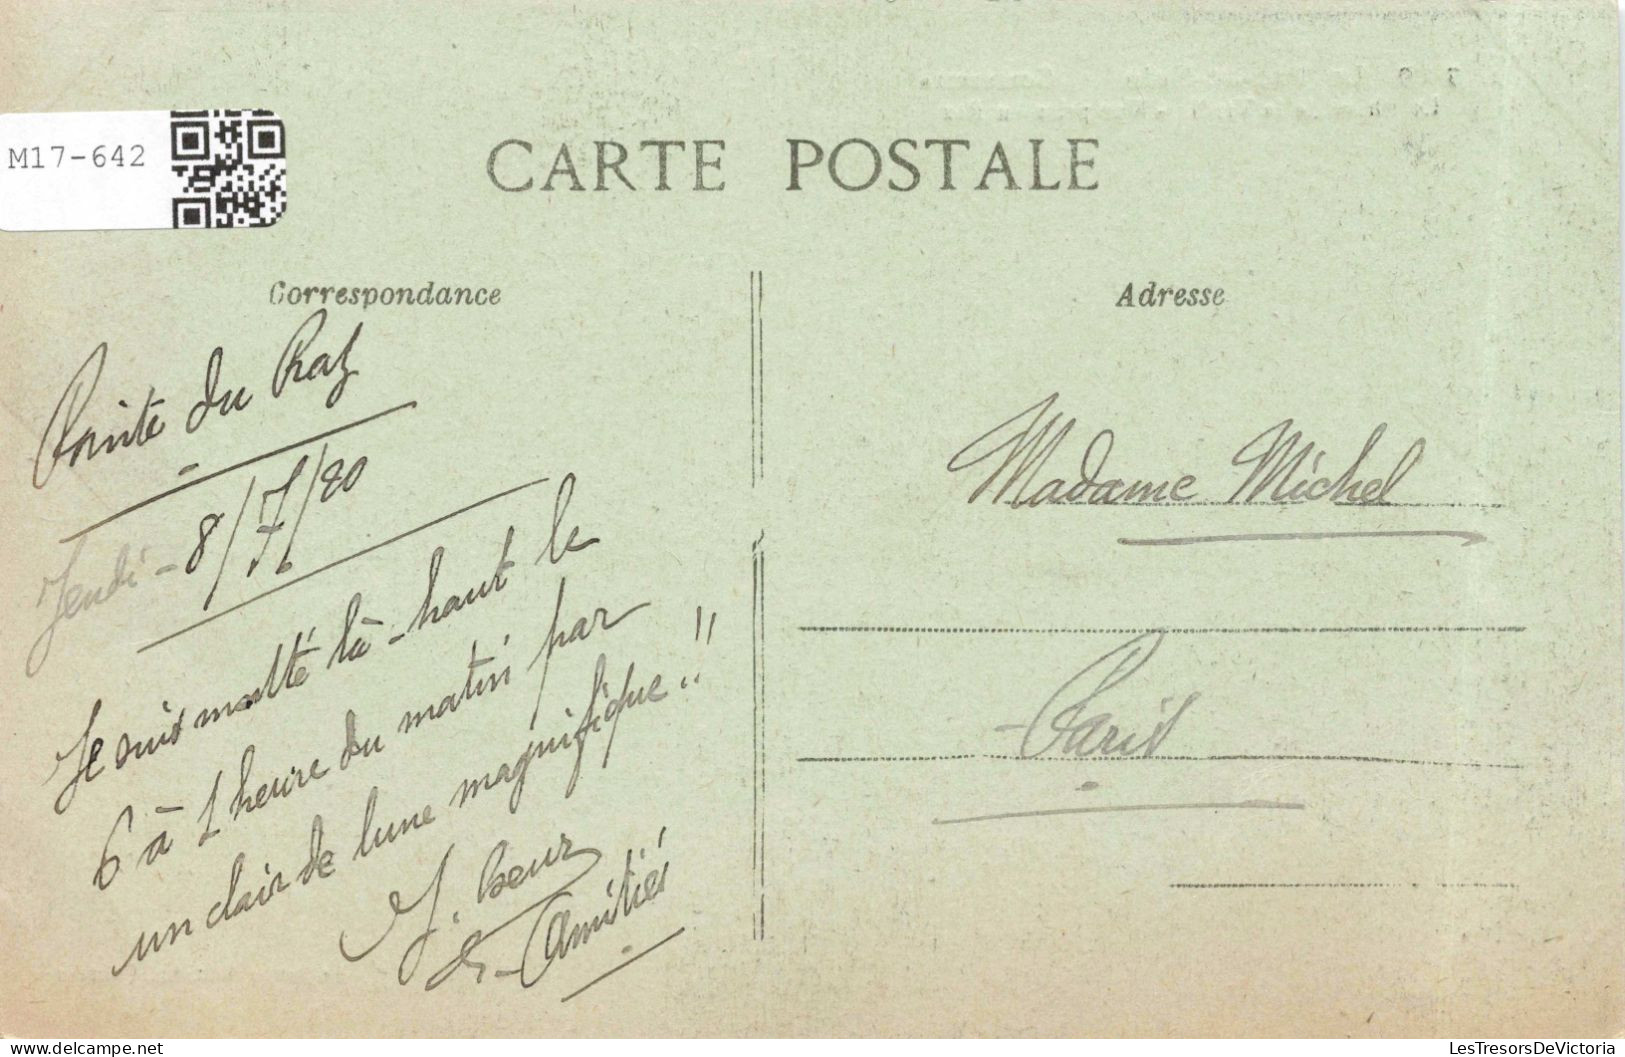 M17-642
CARTE POSTALE
Correspondance
Adresse
Pointe du Raz
Jeudi - 8/7/20
Je suis monté là-haut le
6 à 1 heure du matin par
un clair de lune magnifique !!
J.
Amitiés
Madame Michel
- Paris
LesTresorsDeVictoria.com
https://www.delcampe.net